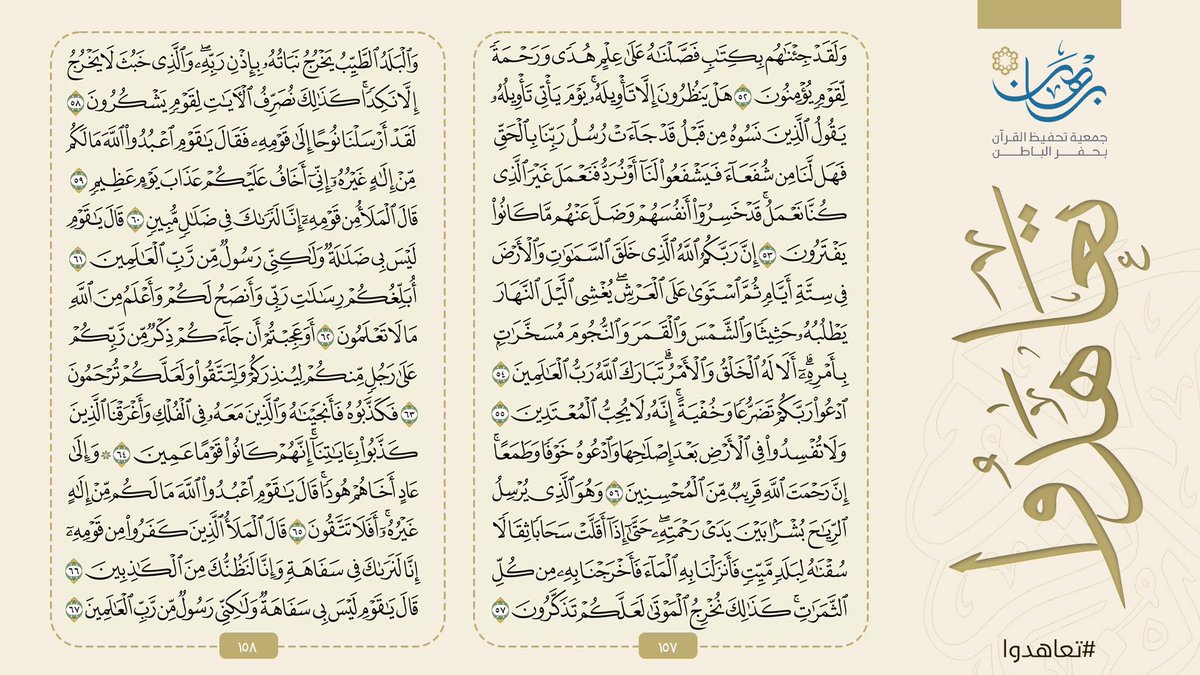 برهان
جمعية تحفيظ القرآن
بحفر الباطن
تعاهدوا
#تعاهدوا
وَلَقَدْ جِئْنَٰهُم بِكِتَٰبٖ فَصَّلْنَٰهُ عَلَىٰ عِلْمٍ هُدٗى وَرَحْمَةٗ
لِّقَوْمٖ يُؤْمِنُونَ ٥٢ هَلْ يَنظُرُونَ إِلَّا تَأْوِيلَهُۥۚ يَوْمَ يَأْتِي تَأْوِيلُهُۥ
يَقُولُ ٱلَّذِينَ نَسُوهُ مِن قَبْلُ قَدْ جَآءَتْ رُسُلُ رَبِّنَا بِٱلْحَقِّ
فَهَل لَّنَا مِن شُفَعَآءَ فَيَشْفَعُوا۟ لَنَآ أَوْ نُرَدُّ فَنَعْمَلَ غَيْرَ ٱلَّذِي
كُنَّا نَعْمَلُۚ قَدْ خَسِرُوٓا۟ أَنفُسَهُمْ وَضَلَّ عَنْهُم مَّا كَانُوا۟
يَفْتَرُونَ ٥٣ إِنَّ رَبَّكُمُ ٱللَّهُ ٱلَّذِي خَلَقَ ٱلسَّمَٰوَٰتِ وَٱلْأَرْضَ
فِي سِتَّةِ أَيَّامٖ ثُمَّ ٱسْتَوَىٰ عَلَى ٱلْعَرْشِۖ يُغْشِي ٱلَّيْلَ ٱلنَّهَارَ
يَطْلُبُهُۥ حَثِيثٗا وَٱلشَّمْسَ وَٱلْقَمَرَ وَٱلنُّجُومَ مُسَخَّرَٰتِۭ
بِأَمْرِهِۦٓۗ أَلَا لَهُ ٱلْخَلْقُ وَٱلْأَمْرُۗ تَبَارَكَ ٱللَّهُ رَبُّ ٱلْعَٰلَمِينَ ٥٤
ٱدْعُوا۟ رَبَّكُمْ تَضَرُّعٗا وَخُفْيَةًۚ إِنَّهُۥ لَا يُحِبُّ ٱلْمُعْتَدِينَ ٥٥
وَلَا تُفْسِدُوا۟ فِي ٱلْأَرْضِ بَعْدَ إِصْلَٰحِهَا وَٱدْعُوهُ خَوْفٗا وَطَمَعًاۚ
إِنَّ رَحْمَتَ ٱللَّهِ قَرِيبٞ مِّنَ ٱلْمُحْسِنِينَ ٥٦ وَهُوَ ٱلَّذِي يُرْسِلُ
ٱلرِّيَٰحَ بُشْرَۢا بَيْنَ يَدَيْ رَحْمَتِهِۦۖ حَتَّىٰٓ إِذَآ أَقَلَّتْ سَحَابٗا ثِقَالٗا
سُقْنَٰهُ لِبَلَدٖ مَّيِّتٖ فَأَنزَلْنَا بِهِ ٱلْمَآءَ فَأَخْرَجْنَا بِهِۦ مِن كُلِّ
ٱلثَّمَرَٰتِۚ كَذَٰلِكَ نُخْرِجُ ٱلْمَوْتَىٰ لَعَلَّكُمْ تَذَكَّرُونَ ٥٧
١٥٧
وَٱلْبَلَدُ ٱلطَّيِّبُ يَخْرُجُ نَبَاتُهُۥ بِإِذْنِ رَبِّهِۦۖ وَٱلَّذِي خَبُثَ لَا يَخْرُجُ
إِلَّا نَكِدٗاۚ كَذَٰلِكَ نُصَرِّفُ ٱلْأٓيَٰتِ لِقَوْمٖ يَشْكُرُونَ ٥٨
لَقَدْ أَرْسَلْنَا نُوحًا إِلَىٰ قَوْمِهِۦ فَقَالَ يَٰقَوْمِ ٱعْبُدُوا۟ ٱللَّهَ مَا لَكُم
مِّنْ إِلَٰهٍ غَيْرُهُۥٓ إِنِّيٓ أَخَافُ عَلَيْكُمْ عَذَابَ يَوْمٍ عَظِيمٖ ٥٩
قَالَ ٱلْمَلَأُ مِن قَوْمِهِۦٓ إِنَّا لَنَرَىٰكَ فِي ضَلَٰلٖ مُّبِينٖ ٦٠ قَالَ يَٰقَوْمِ
لَيْسَ بِي ضَلَٰلَةٞ وَلَٰكِنِّي رَسُولٞ مِّن رَّبِّ ٱلْعَٰلَمِينَ ٦١
أُبَلِّغُكُمْ رِسَٰلَٰتِ رَبِّي وَأَنصَحُ لَكُمْ وَأَعْلَمُ مِنَ ٱللَّهِ
مَا لَا تَعْلَمُونَ ٦٢ أَوَعَجِبْتُمْ أَن جَآءَكُمْ ذِكْرٞ مِّن رَّبِّكُمْ
عَلَىٰ رَجُلٖ مِّنكُمْ لِيُنذِرَكُمْ وَلِتَتَّقُوا۟ وَلَعَلَّكُمْ تُرْحَمُونَ
٦٣ فَكَذَّبُوهُ فَأَنجَيْنَٰهُ وَٱلَّذِينَ مَعَهُۥ فِي ٱلْفُلْكِ وَأَغْرَقْنَا ٱلَّذِينَ
كَذَّبُوا۟ بِـَٔايَٰتِنَآۚ إِنَّهُمْ كَانُوا۟ قَوْمًا عَمِينَ ٦٤ ۞ وَإِلَىٰ
عَادٍ أَخَاهُمْ هُودٗاۚ قَالَ يَٰقَوْمِ ٱعْبُدُوا۟ ٱللَّهَ مَا لَكُم مِّنْ إِلَٰهٍ
غَيْرُهُۥٓۚ أَفَلَا تَتَّقُونَ ٦٥ قَالَ ٱلْمَلَأُ ٱلَّذِينَ كَفَرُوا۟ مِن قَوْمِهِۦٓ
إِنَّا لَنَرَىٰكَ فِي سَفَاهَةٖ وَإِنَّا لَنَظُنُّكَ مِنَ ٱلْكَٰذِبِينَ ٦٦
قَالَ يَٰقَوْمِ لَيْسَ بِي سَفَاهَةٞ وَلَٰكِنِّي رَسُولٞ مِّن رَّبِّ ٱلْعَٰلَمِينَ ٦٧
١٥٨